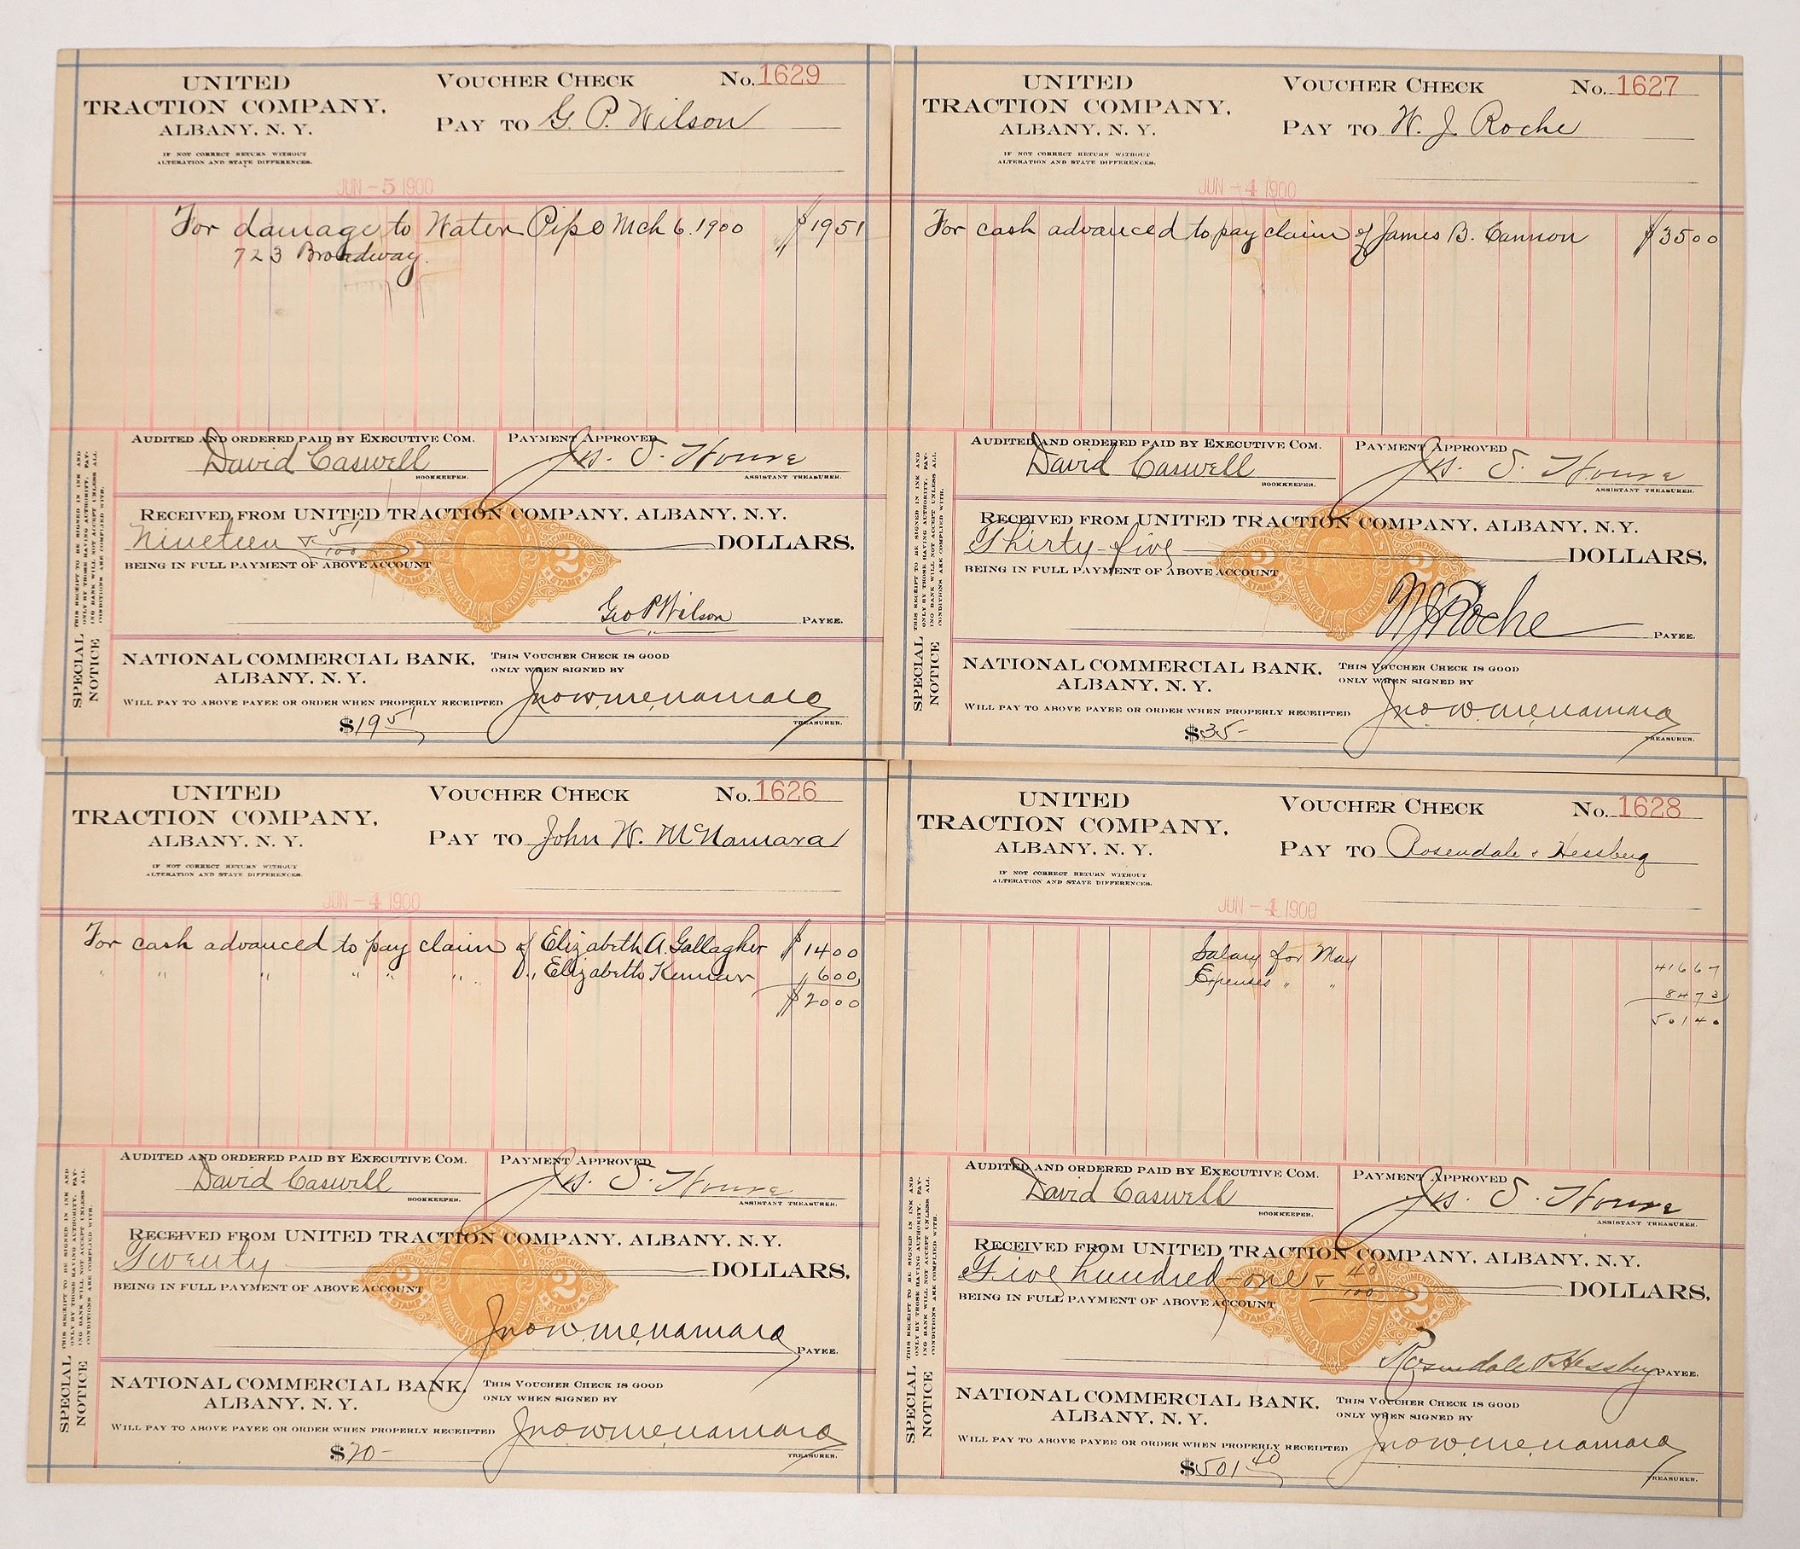 UNITED
TRACTION COMPANY,
ALBANY, N. Y.
IF NOT CORRECT RETURN WITHOUT
ALTERATION AND STATE DIFFERENCES.
VOUCHER CHECK
No. 1629
PAY TO G. P. Wilson
JUN -5 1900
For damage to Water Pipe Mch 6. 1900 $1951
723 Broadway.
AUDITED AND ORDERED PAID BY EXECUTIVE COM.
David Caswell
BOOKKEEPER.
PAYMENT APPROVED
Jas. S. House
ASSISTANT TREASURER.
RECEIVED FROM UNITED TRACTION COMPANY, ALBANY, N.Y.
Nineteen & 51/100 DOLLARS.
BEING IN FULL PAYMENT OF ABOVE ACCOUNT
Geo P Wilson PAYEE.
SPECIAL NOTICE
THIS RECEIPT TO BE SIGNED IN INK AND
ONLY BY THOSE HAVING AUTHORITY. PAY-
ING BANK WILL NOT ACCEPT UNLESS ALL
CONDITIONS ARE COMPLIED WITH.
NATIONAL COMMERCIAL BANK,
ALBANY, N. Y.
THIS VOUCHER CHECK IS GOOD
ONLY WHEN SIGNED BY
WILL PAY TO ABOVE PAYEE OR ORDER WHEN PROPERLY RECEIPTED
Jno. W. McNamara
TREASURER.
$19 51
UNITED
TRACTION COMPANY,
ALBANY, N. Y.
IF NOT CORRECT RETURN WITHOUT
ALTERATION AND STATE DIFFERENCES.
VOUCHER CHECK
No. 1627
PAY TO W. J. Roche
JUN -4 1900
For cash advanced to pay claim of James B. Cannon $3500
AUDITED AND ORDERED PAID BY EXECUTIVE COM.
David Caswell
BOOKKEEPER.
PAYMENT APPROVED
Jas. S. House
ASSISTANT TREASURER.
RECEIVED FROM UNITED TRACTION COMPANY, ALBANY, N.Y.
Thirty-five DOLLARS.
BEING IN FULL PAYMENT OF ABOVE ACCOUNT
W J Roche PAYEE.
SPECIAL NOTICE
THIS RECEIPT TO BE SIGNED IN INK AND
ONLY BY THOSE HAVING AUTHORITY. PAY-
ING BANK WILL NOT ACCEPT UNLESS ALL
CONDITIONS ARE COMPLIED WITH.
NATIONAL COMMERCIAL BANK,
ALBANY, N. Y.
THIS VOUCHER CHECK IS GOOD
ONLY WHEN SIGNED BY
WILL PAY TO ABOVE PAYEE OR ORDER WHEN PROPERLY RECEIPTED
Jno. W. McNamara
TREASURER.
$35-
UNITED
TRACTION COMPANY,
ALBANY, N. Y.
IF NOT CORRECT RETURN WITHOUT
ALTERATION AND STATE DIFFERENCES.
VOUCHER CHECK
No. 1626
PAY TO John W. McNamara
JUN -4 1900
For cash advanced to pay claim of Elizabeth A. Gallagher $1400
" " " " " " " Elizabeth 600
$2000
AUDITED AND ORDERED PAID BY EXECUTIVE COM.
David Caswell
BOOKKEEPER.
PAYMENT APPROVED
Jas. S. House
ASSISTANT TREASURER.
RECEIVED FROM UNITED TRACTION COMPANY, ALBANY, N.Y.
Twenty DOLLARS.
BEING IN FULL PAYMENT OF ABOVE ACCOUNT
Jno. W. McNamara PAYEE.
SPECIAL NOTICE
THIS RECEIPT TO BE SIGNED IN INK AND
ONLY BY THOSE HAVING AUTHORITY. PAY-
ING BANK WILL NOT ACCEPT UNLESS ALL
CONDITIONS ARE COMPLIED WITH.
NATIONAL COMMERCIAL BANK,
ALBANY, N. Y.
THIS VOUCHER CHECK IS GOOD
ONLY WHEN SIGNED BY
WILL PAY TO ABOVE PAYEE OR ORDER WHEN PROPERLY RECEIPTED
Jno. W. McNamara
TREASURER.
$20-
UNITED
TRACTION COMPANY,
ALBANY, N. Y.
IF NOT CORRECT RETURN WITHOUT
ALTERATION AND STATE DIFFERENCES.
VOUCHER CHECK
No. 1628
PAY TO Rosendale & Hessberg
JUN -4 1900
Salary for May 41667
Expenses " " 8473
50140
AUDITED AND ORDERED PAID BY EXECUTIVE COM.
David Caswell
BOOKKEEPER.
PAYMENT APPROVED
Jas. S. House
ASSISTANT TREASURER.
RECEIVED FROM UNITED TRACTION COMPANY, ALBANY, N.Y.
Five hundred-one & 40/100 DOLLARS.
BEING IN FULL PAYMENT OF ABOVE ACCOUNT
Rosendale & Hessberg PAYEE.
SPECIAL NOTICE
THIS RECEIPT TO BE SIGNED IN INK AND
ONLY BY THOSE HAVING AUTHORITY. PAY-
ING BANK WILL NOT ACCEPT UNLESS ALL
CONDITIONS ARE COMPLIED WITH.
NATIONAL COMMERCIAL BANK,
ALBANY, N. Y.
THIS VOUCHER CHECK IS GOOD
ONLY WHEN SIGNED BY
WILL PAY TO ABOVE PAYEE OR ORDER WHEN PROPERLY RECEIPTED
Jno. W. McNamara
TREASURER.
$501 40